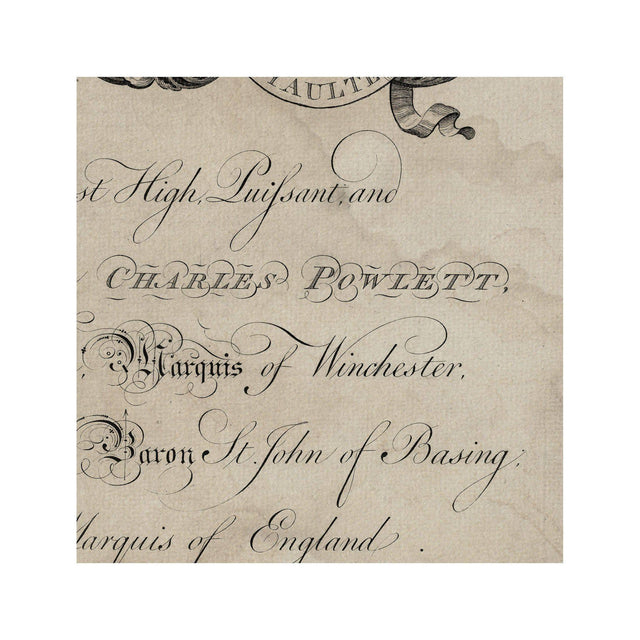 AULTE
st High, Puiſsant, and
CHARLES POWLETT,
Marquis of Winchester,
Baron St. John of Basing;
Marquis of England .